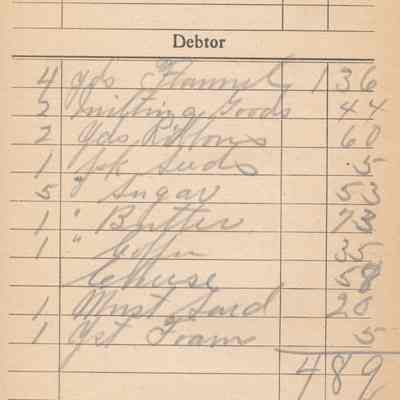 Debtor
4 yds Flannel 1 36
2 Knitting Goods 44
2 yds Ribbons 60
1 pk 5
5 " Sugar 53
1 " Butter 73
1 " Coffee 35
Cheese 58
1 Must Sard 20
1 Yst Foam 5
4 89